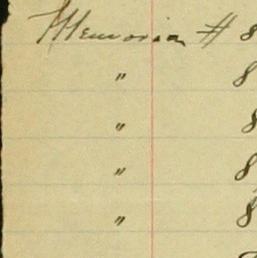 Memorian # 8
" 8
" 8
" 8
" 8